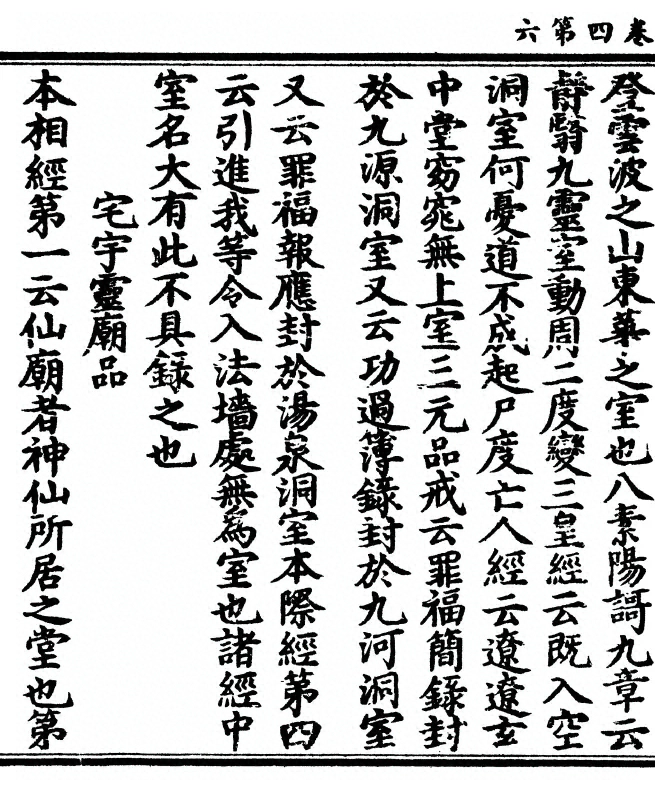 卷四第六
登雲波之山東華之室也八素陽謌九章云
靜翳九靈室動周二度變三皇經云既入空
洞室何憂道不成起尸度亡人經云遼遼玄
中堂窈窕無上室三元品戒云罪福簡錄封
於九源洞室又云功過簿錄封於九河洞室
又云罪福報應封於湯泉洞室本際經第四
云引進我等令入法墻處無為室也諸經中
室名大有此不具錄之也
宅宇靈廟品
本相經第一云仙廟者神仙所居之堂也第